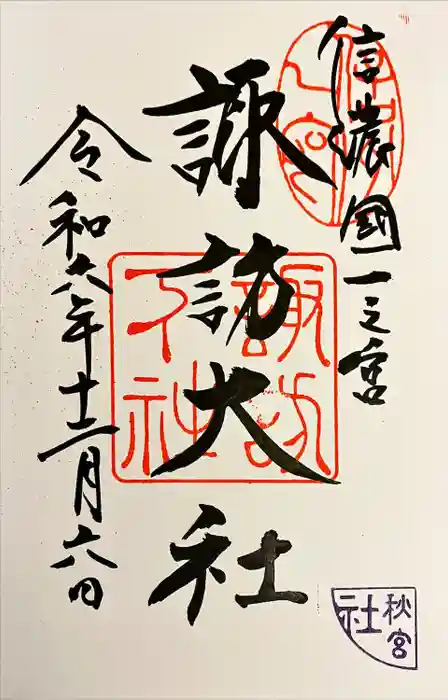 信濃國一之宮
諏訪大社
令和六年十二月六日
諏訪
下社
秋宮
社